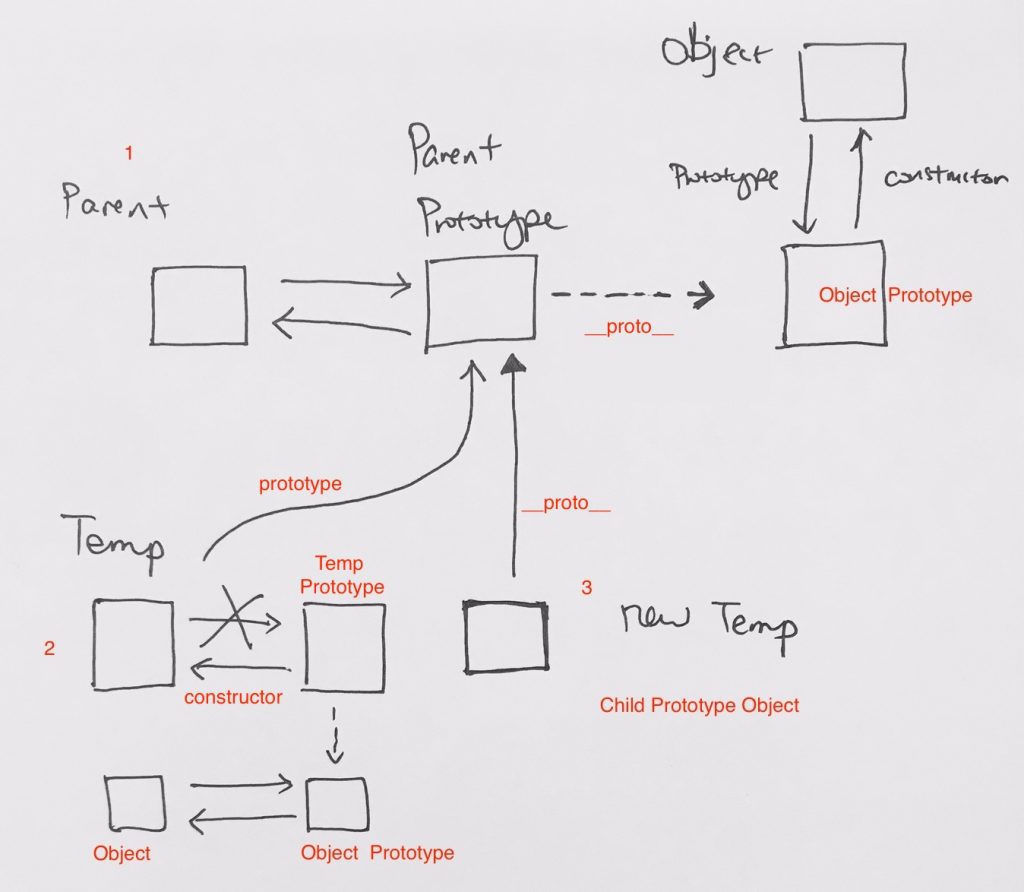 Object
1
Parent
Parent
Prototype
Prototype
constructor
Object Prototype
__proto__
prototype
__proto__
Temp
Temp
Prototype
3
new Temp
2
constructor
Child Prototype Object
Object
Object Prototype